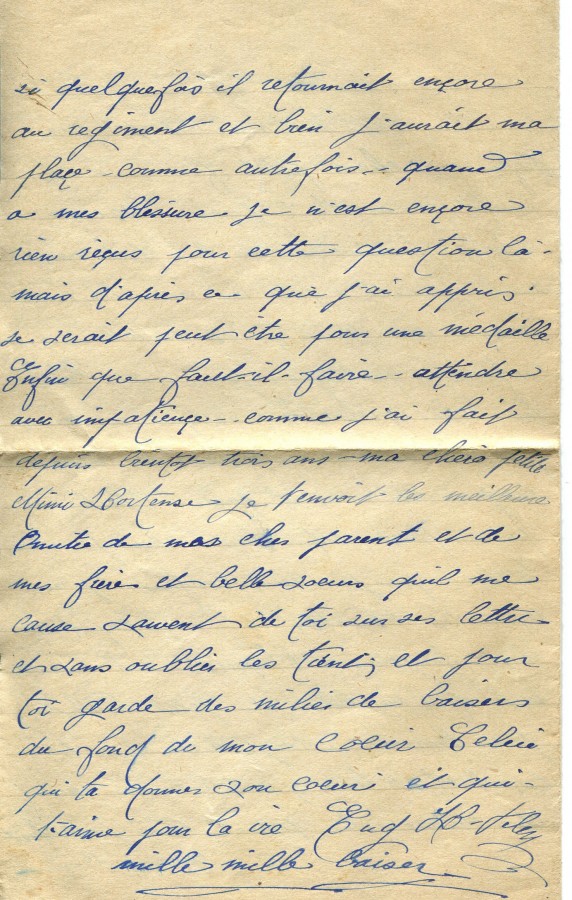 si quelquefois il retournait ençore
au regiment et bien j'aurait ma
plaçe - comme autrefois -- quand
a mes blessure je n'est ençore
rien reçus pour cette question là -
mais d'après ce que j'ai appris
se serait peut etre pour une médaille
Enfin que faut-il-faire -- attendre
avec impatiençe -- comme j'ai fait
depuis bientot trois ans - ma chere petite
Mimi Hortense je t'envoit les meilleurs
de mes cher parent et de
mes frère et belle soeurs qu'il me
cause souvent de toi sur ses lettre -
et sans oublier les tient, et pour
toi garde des milier de baisers
du fond de mon coeur Celui
qui ta donner son coeur et qui -
t'aime pour la vie Eug
mille mille baiser